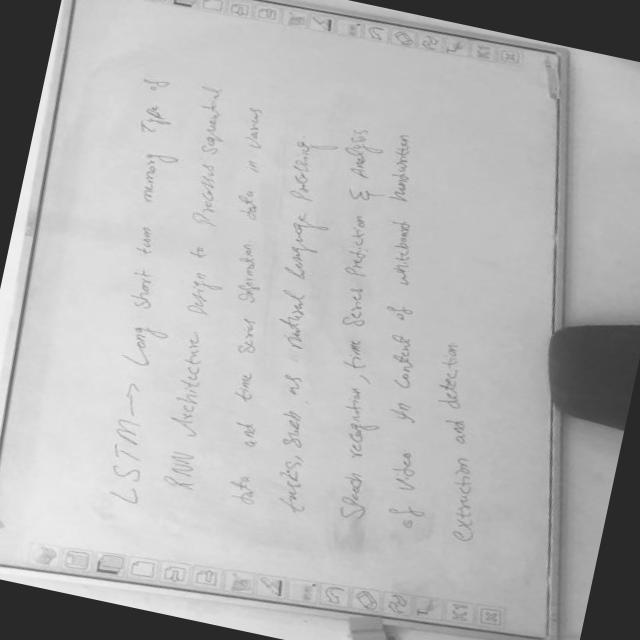 LSTM → Long short term memory Type of
RNN Architecture Design to Processed sequential
data and time series information data in various
tasks, such as natural language processing.
Speech recognition, time series Prediction & Analysis
of video in context of whiteboard handwritten
extraction and detection